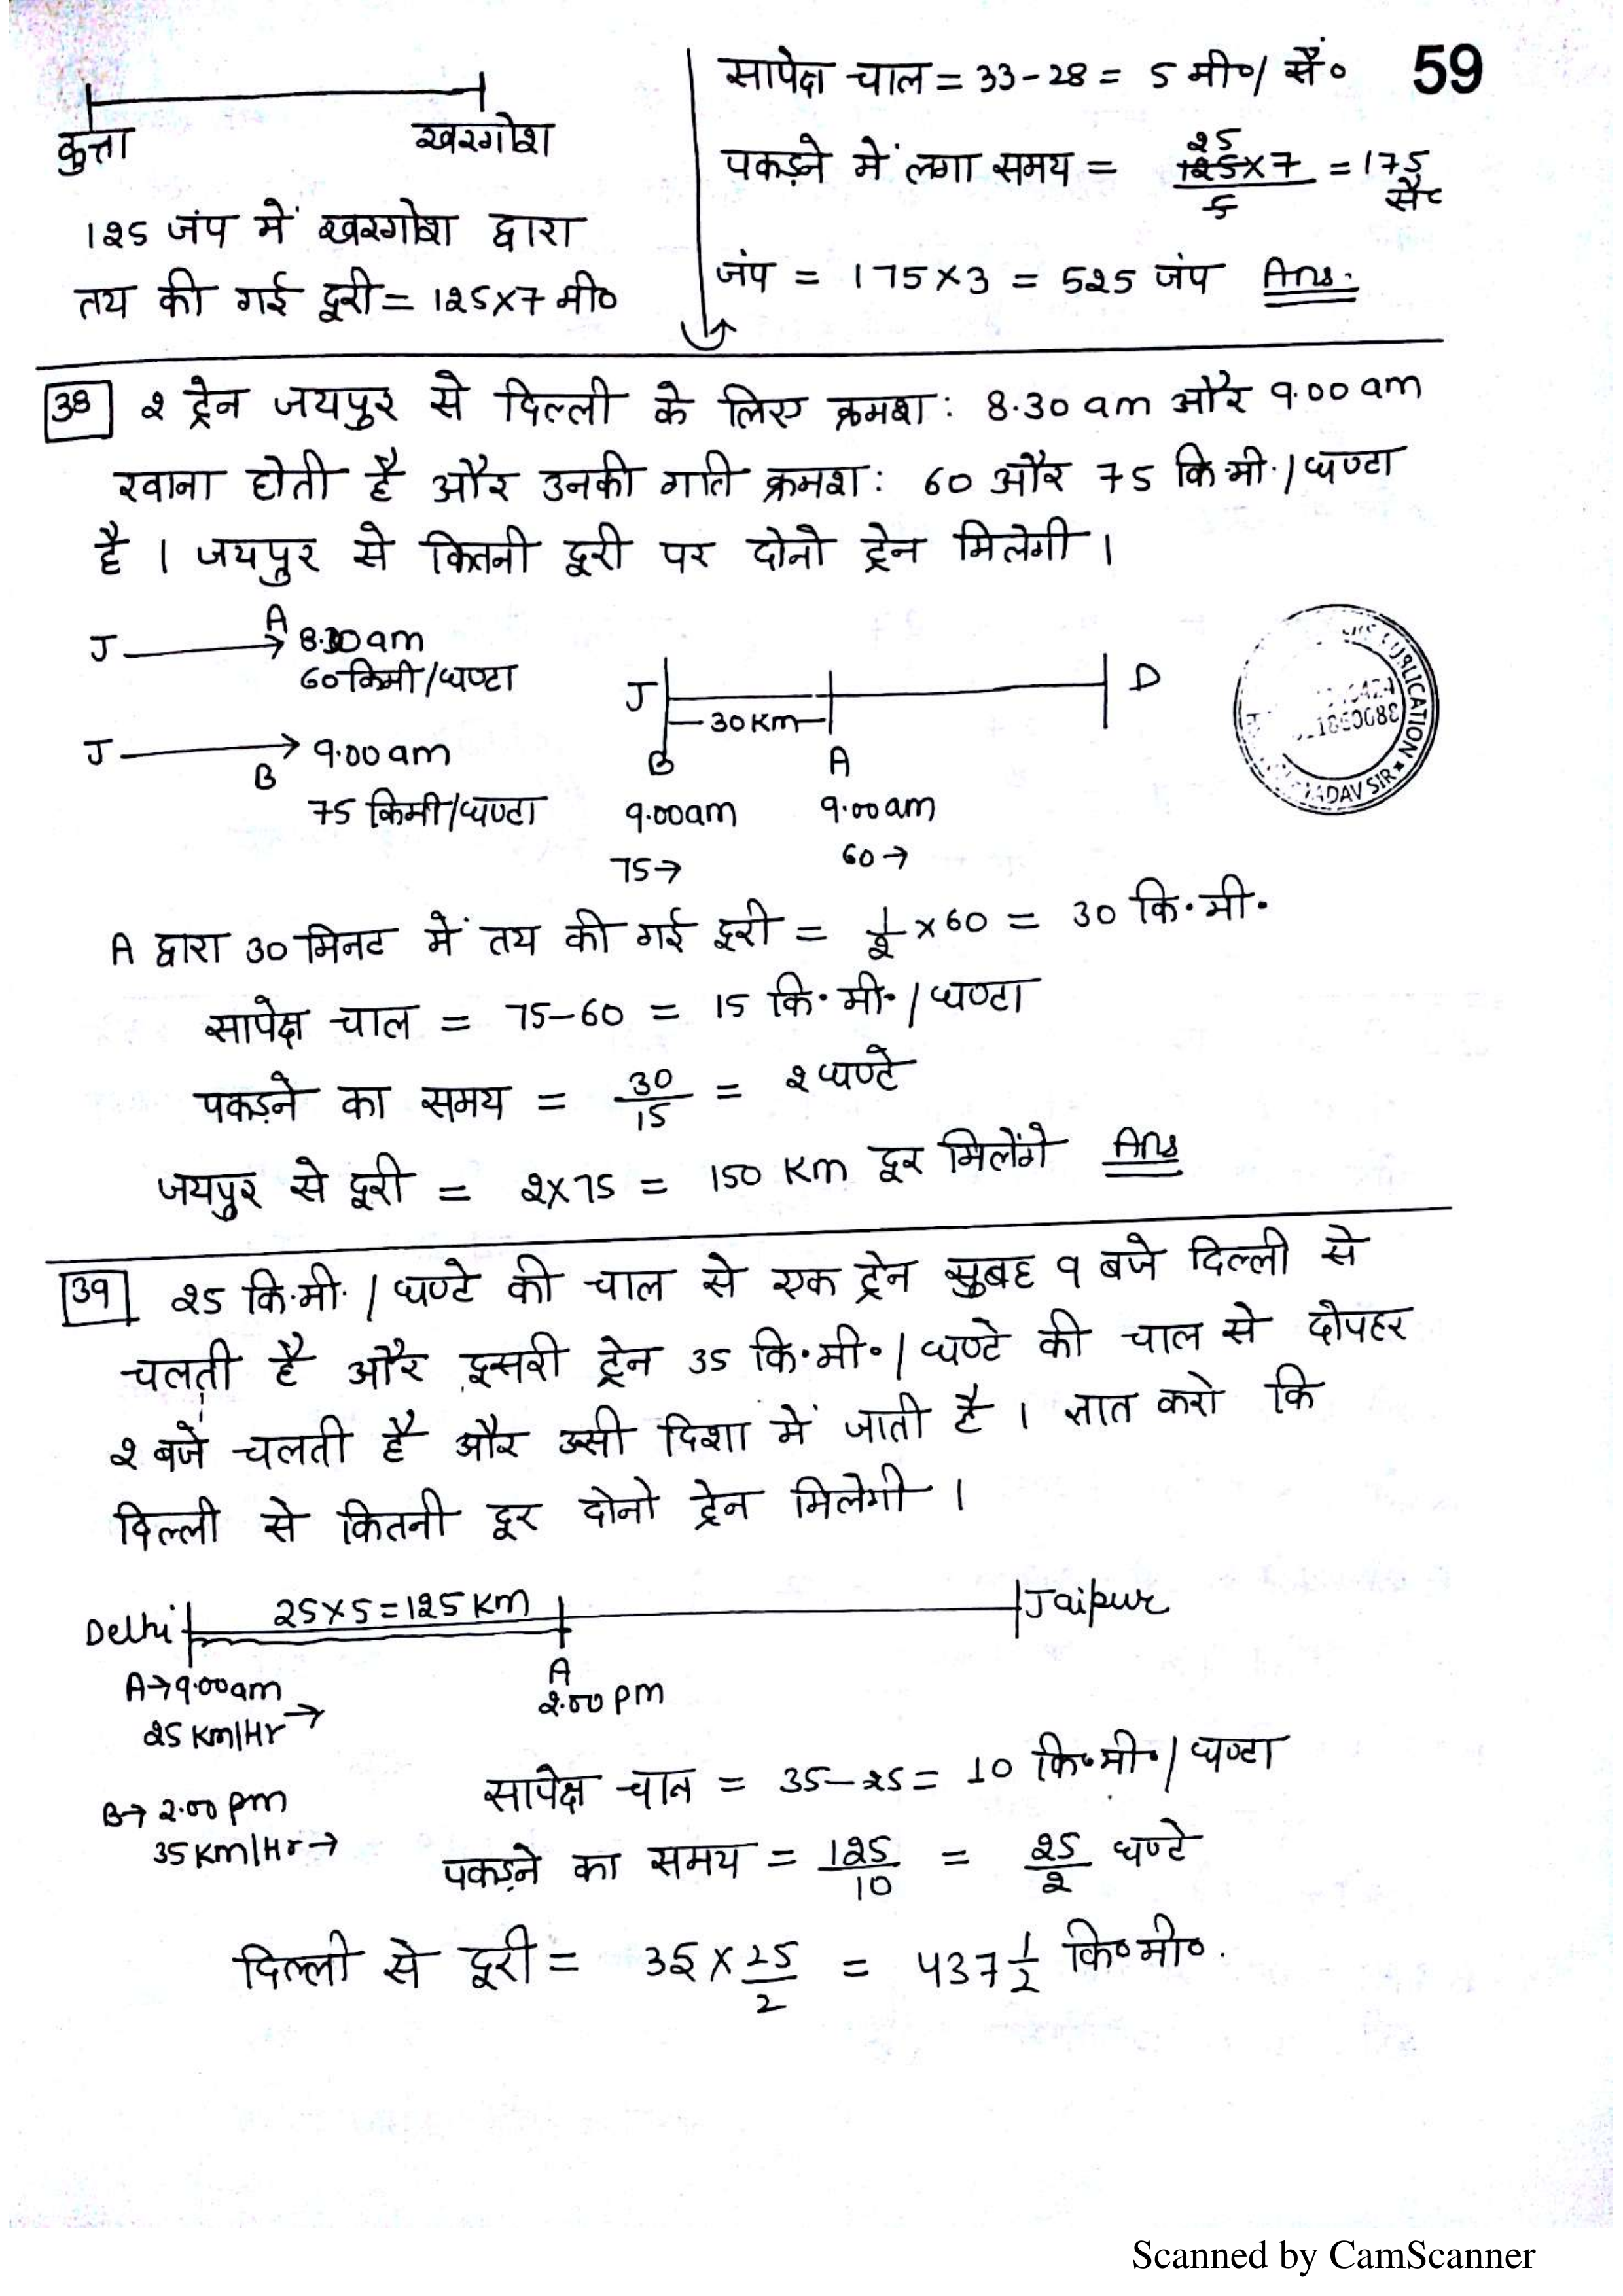 59
कुत्ता खरगोश
125 जंप में खरगोश द्वारा
तय की गई दूरी = 125×7 मी०
सापेक्ष चाल = 33-28 = 5 मी०/ सै०
पकड़ने में लगा समय = 25 125×7 / 5 = 175 सै०
जंप = 175×3 = 525 जंप Ans.
38 2 ट्रेन जयपुर से दिल्ली के लिए क्रमश: 8.30 am और 9.00 am
रवाना होती है और उनकी गति क्रमश: 60 और 75 कि.मी./घण्टा
है । जयपुर से कितनी दूरी पर दोनो ट्रेन मिलेगी ।
J A 8.30 am
60 किमी/घण्टा
J B 9.00 am
75 किमी/घण्टा
J D
30 Km
B A
9.00am 9.00am
75→ 60→
PUBLICATION
YADAV SIR
A द्वारा 30 मिनट में तय की गई दूरी = 1/2 ×60 = 30 कि.मी.
सापेक्ष चाल = 75-60 = 15 कि.मी./घण्टा
पकड़ने का समय = 30/15 = 2 घण्टे
जयपुर से दूरी = 2×75 = 150 Km दूर मिलेंगे Ans
39 25 कि.मी./घण्टे की चाल से एक ट्रेन सुबह 9 बजे दिल्ली से
चलती है और दूसरी ट्रेन 35 कि.मी./घण्टे की चाल से दोपहर
2 बजे चलती है और उसी दिशा में जाती है । ज्ञात करो कि
दिल्ली से कितनी दूर दोनो ट्रेन मिलेगी ।
Delhi 25×5=125 Km Jaipur
A→9.00am
25 Km/Hr →
A
2.00 pm
B→ 2.00 pm
35 Km/Hr →
सापेक्ष चाल = 35-25 = 10 कि०मी०/घण्टा
पकड़ने का समय = 125/10 = 25/2 घण्टे
दिल्ली से दूरी = 35 × 25/2 = 437 1/2 कि०मी०.
Scanned by CamScanner